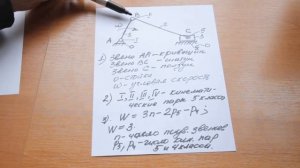 A
B
C
1) Звено AB - кривошип
Звено BC - шатун
Звено C - ползун
0 - стойка
ω - угловая скорость
2) I, II, III, IV - кинемати-
ческие пары 5 класса
3) W = 3n - 2p5 - p4;
W = 3
n - число подв. звеньев
P5, P4 - число кин. пар
5 и 4 классов.